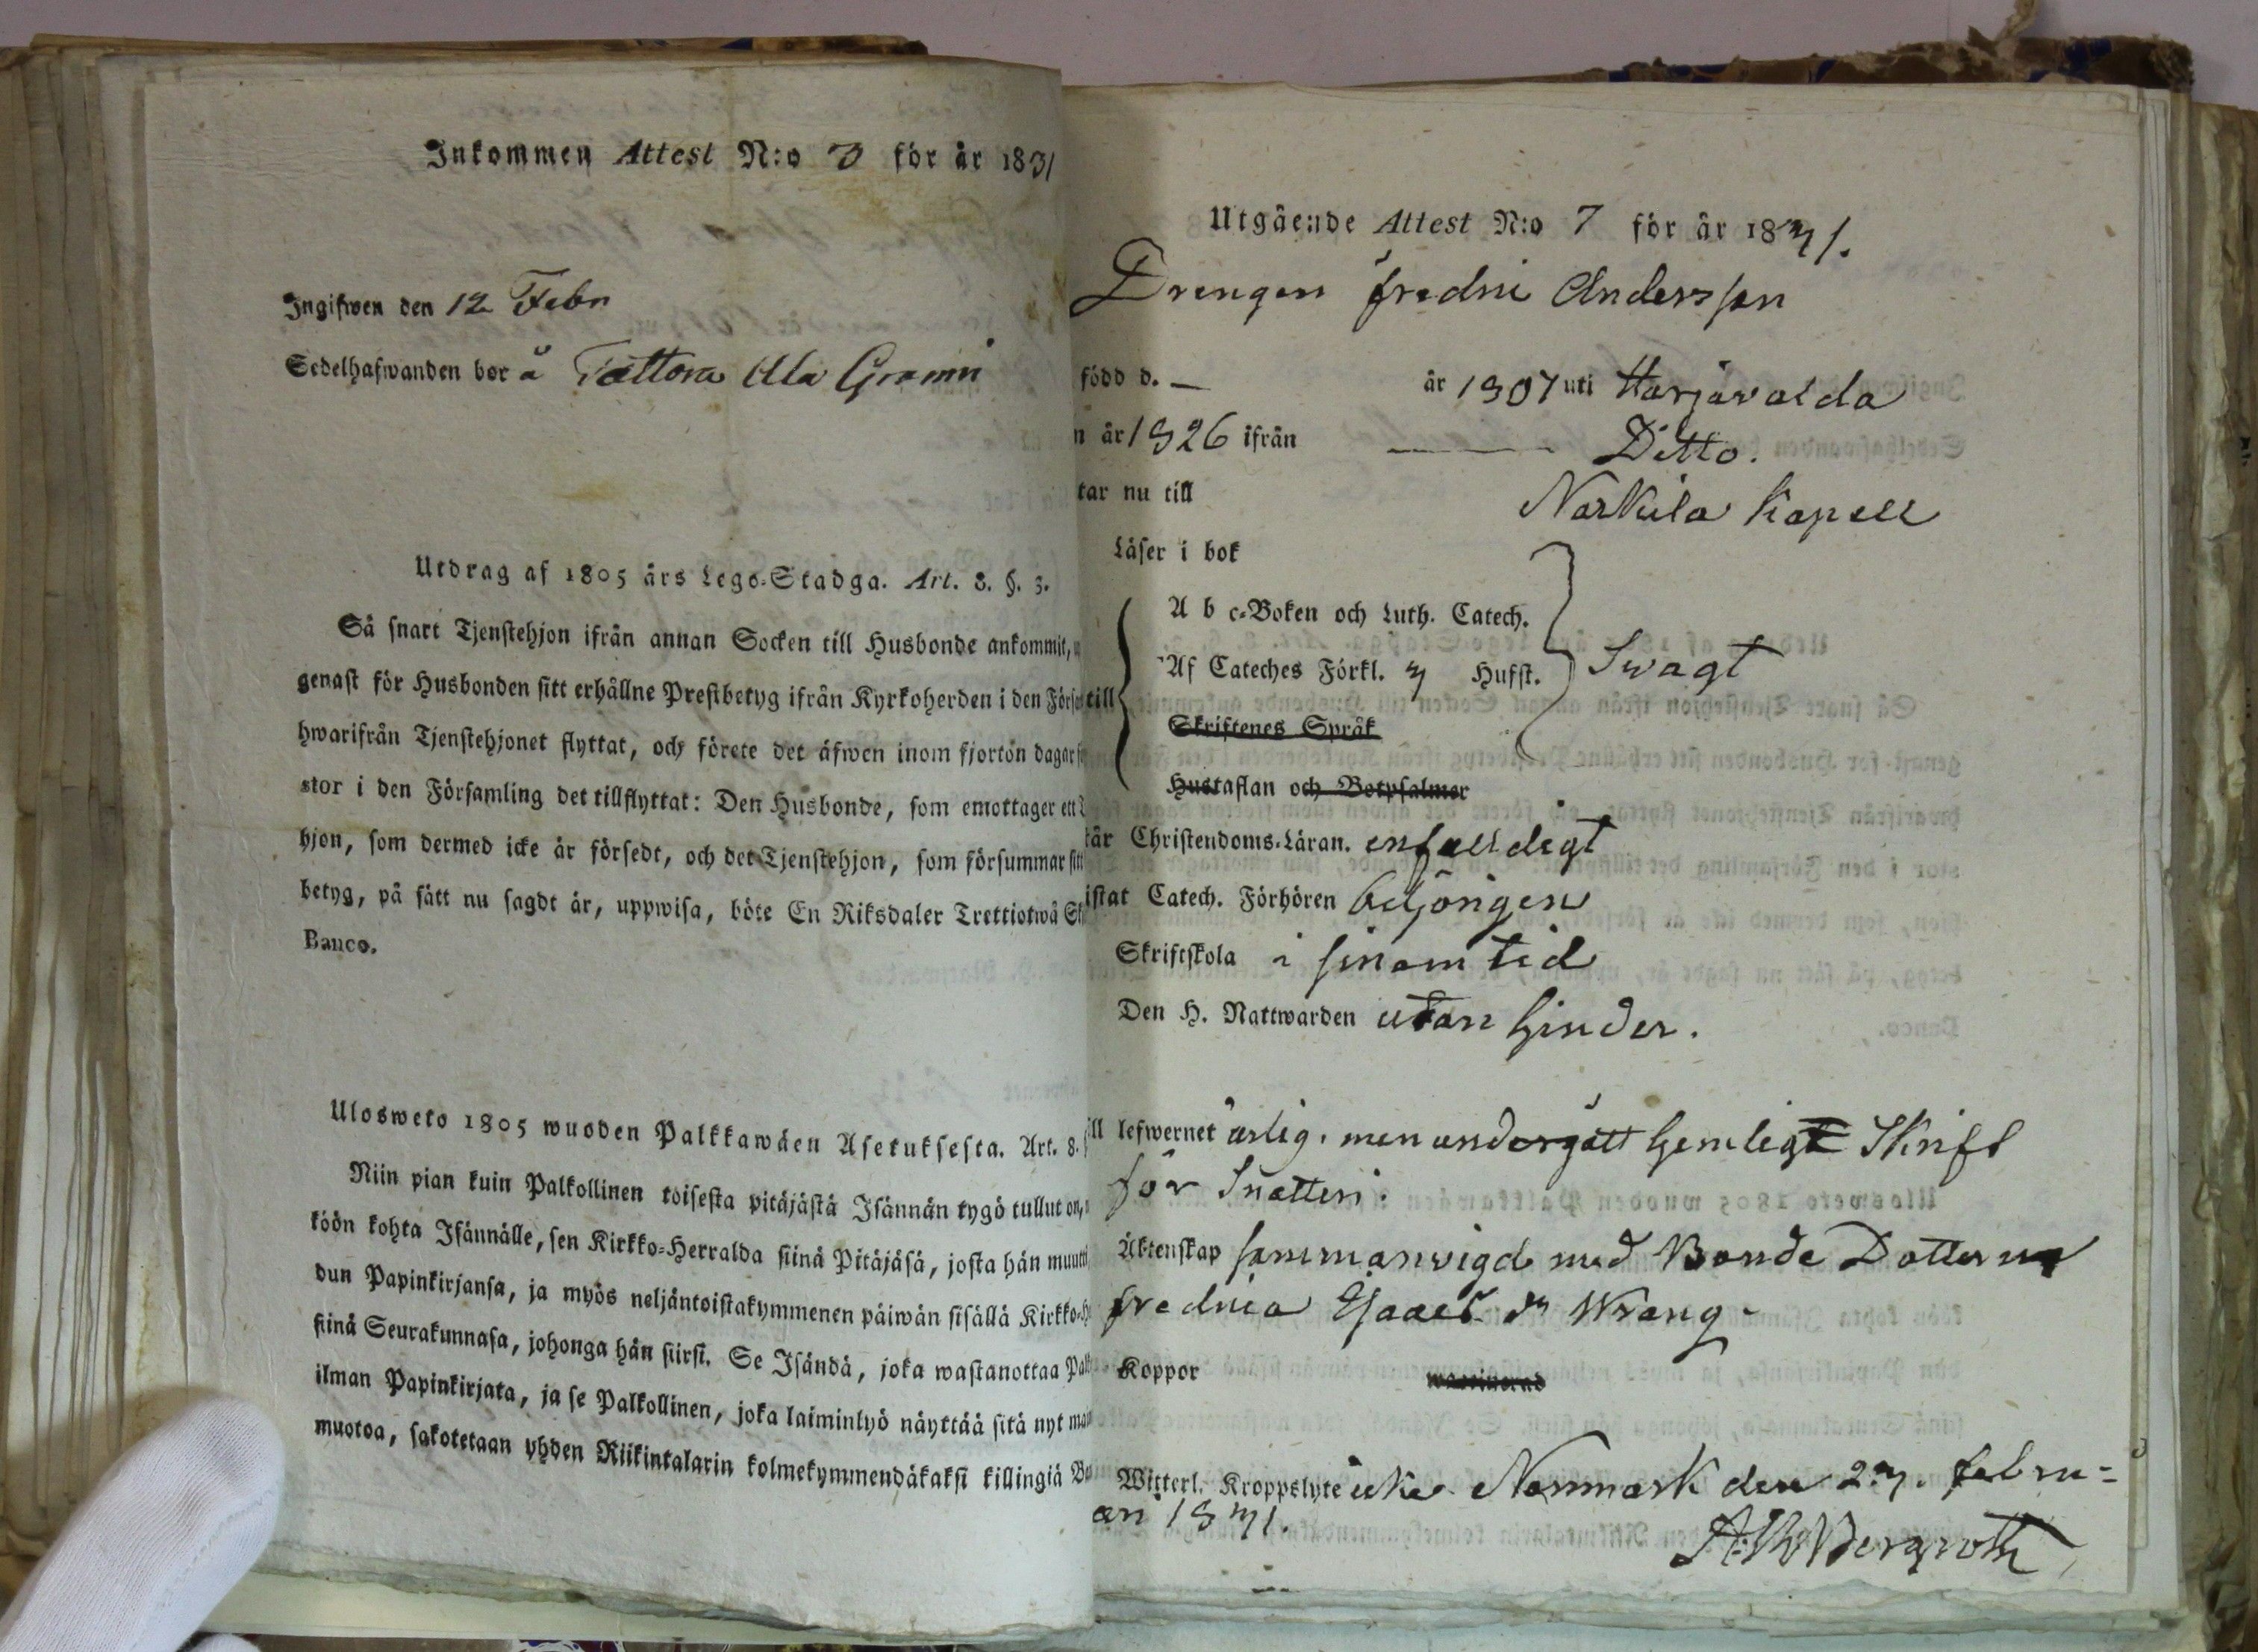 Inkommen Attest N:o 3 för år 1831
Ingifwen den 12 Febr
Sedelhafwanden bor å Tattara Ala Grannı
Utdrag af 1805 års Lego-Stadga. Art. 8. §. 3.
Så snart Tjenstehjon ifrån annan Socken till Husbonde ankommit,
genast för Husbonden sitt erhållne Prestbetyg ifrån Kyrkoherden i den Förs
hwarifrån Tjenstehjonet flyttat, och förete det äfwen inom fjorton dagar
stor i den Församling det tillflyttat: Den Husbonde, som emottager ett
hjon, som dermed icke är försedt, och det Tjenstehjon, som försummar sitt
betyg, på sätt nu sagdt är, uppwisa, böte En Riksdaler Trettiotwå Sk
Banco.
Ulosweto 1805 wuoden Palkkawäen Asetuksesta. Art. 8.
Niin pian kuin Palkollinen toisesta pitäjästä Isännän tygö tullut on,
köön kohta Isännälle, sen Kirkko-Herralda siinä Pitäjäsä, josta hän muutti
dun Papinkirjansa, ja myös neljäntoistakymmenen päiwän sisällä Kirkko-H
siinä Seurakunnasa, johonga hän siirsi. Se Isändä, joka wastanottaa Pal
ilman Papinkirjata, ja se Palkollinen, joka laiminlyö näyttää sitä nyt ma
muotoa, sakotetaan yhden Riikintalarin kolmekymmendäkaksi killingiä B
Utgående Attest N:o 7 för år 1831.
Drengen Fredric Andersson
född d. — år 1807 uti Harjavalda
n år 1826 ifrån — Ditto.
tar nu till Norkula Kapell
Läser i bok
till A b c-Boken och Luth. Catech.
Af Cateches Förkl. 3 Hufst. Swagt
Skriftenes Språk
Hustaflan och Botpsalmer
tär Christendoms-Läran. enfaldigt
istat Catech. Förhören behörigen
Skriftskola i sinom tid
Den H. Nattwarden utan hinder.
ill lefwernet ärlig, men undergått hemligt Skrift
för Snatteri.
Äktenskap sammanvigd med Bonde Dottern
Fredrica Isaacs dr Wrang.
Koppor waccinerad
Witterl. Kroppslyte icke Normark den 23. Febru=
ari 1831.